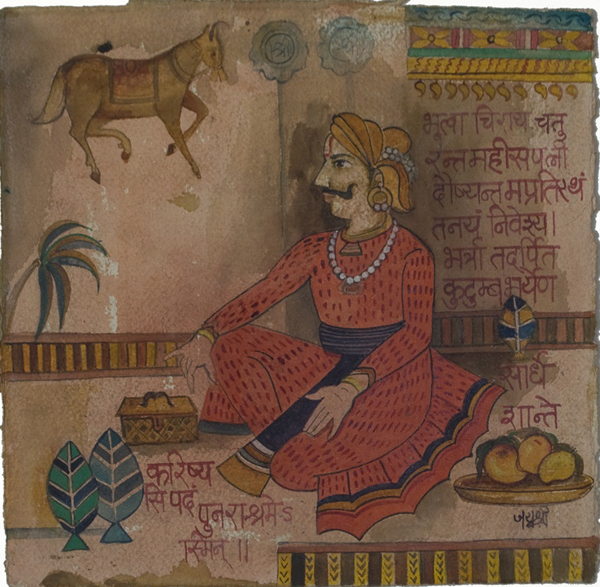 श्री श्री
भुत्वा चिराय चतु
रन्तमहीसपत्नी
दौष्यन्तमप्रतिरथं
तनयं निवेश्य।
भर्त्रा तदर्पित
कुटुम्बभर्येण
सार्ध
शान्ते
करिष्य
सि पदं
पुनराश्रमेऽ
स्मिन् ।।
जयश्री